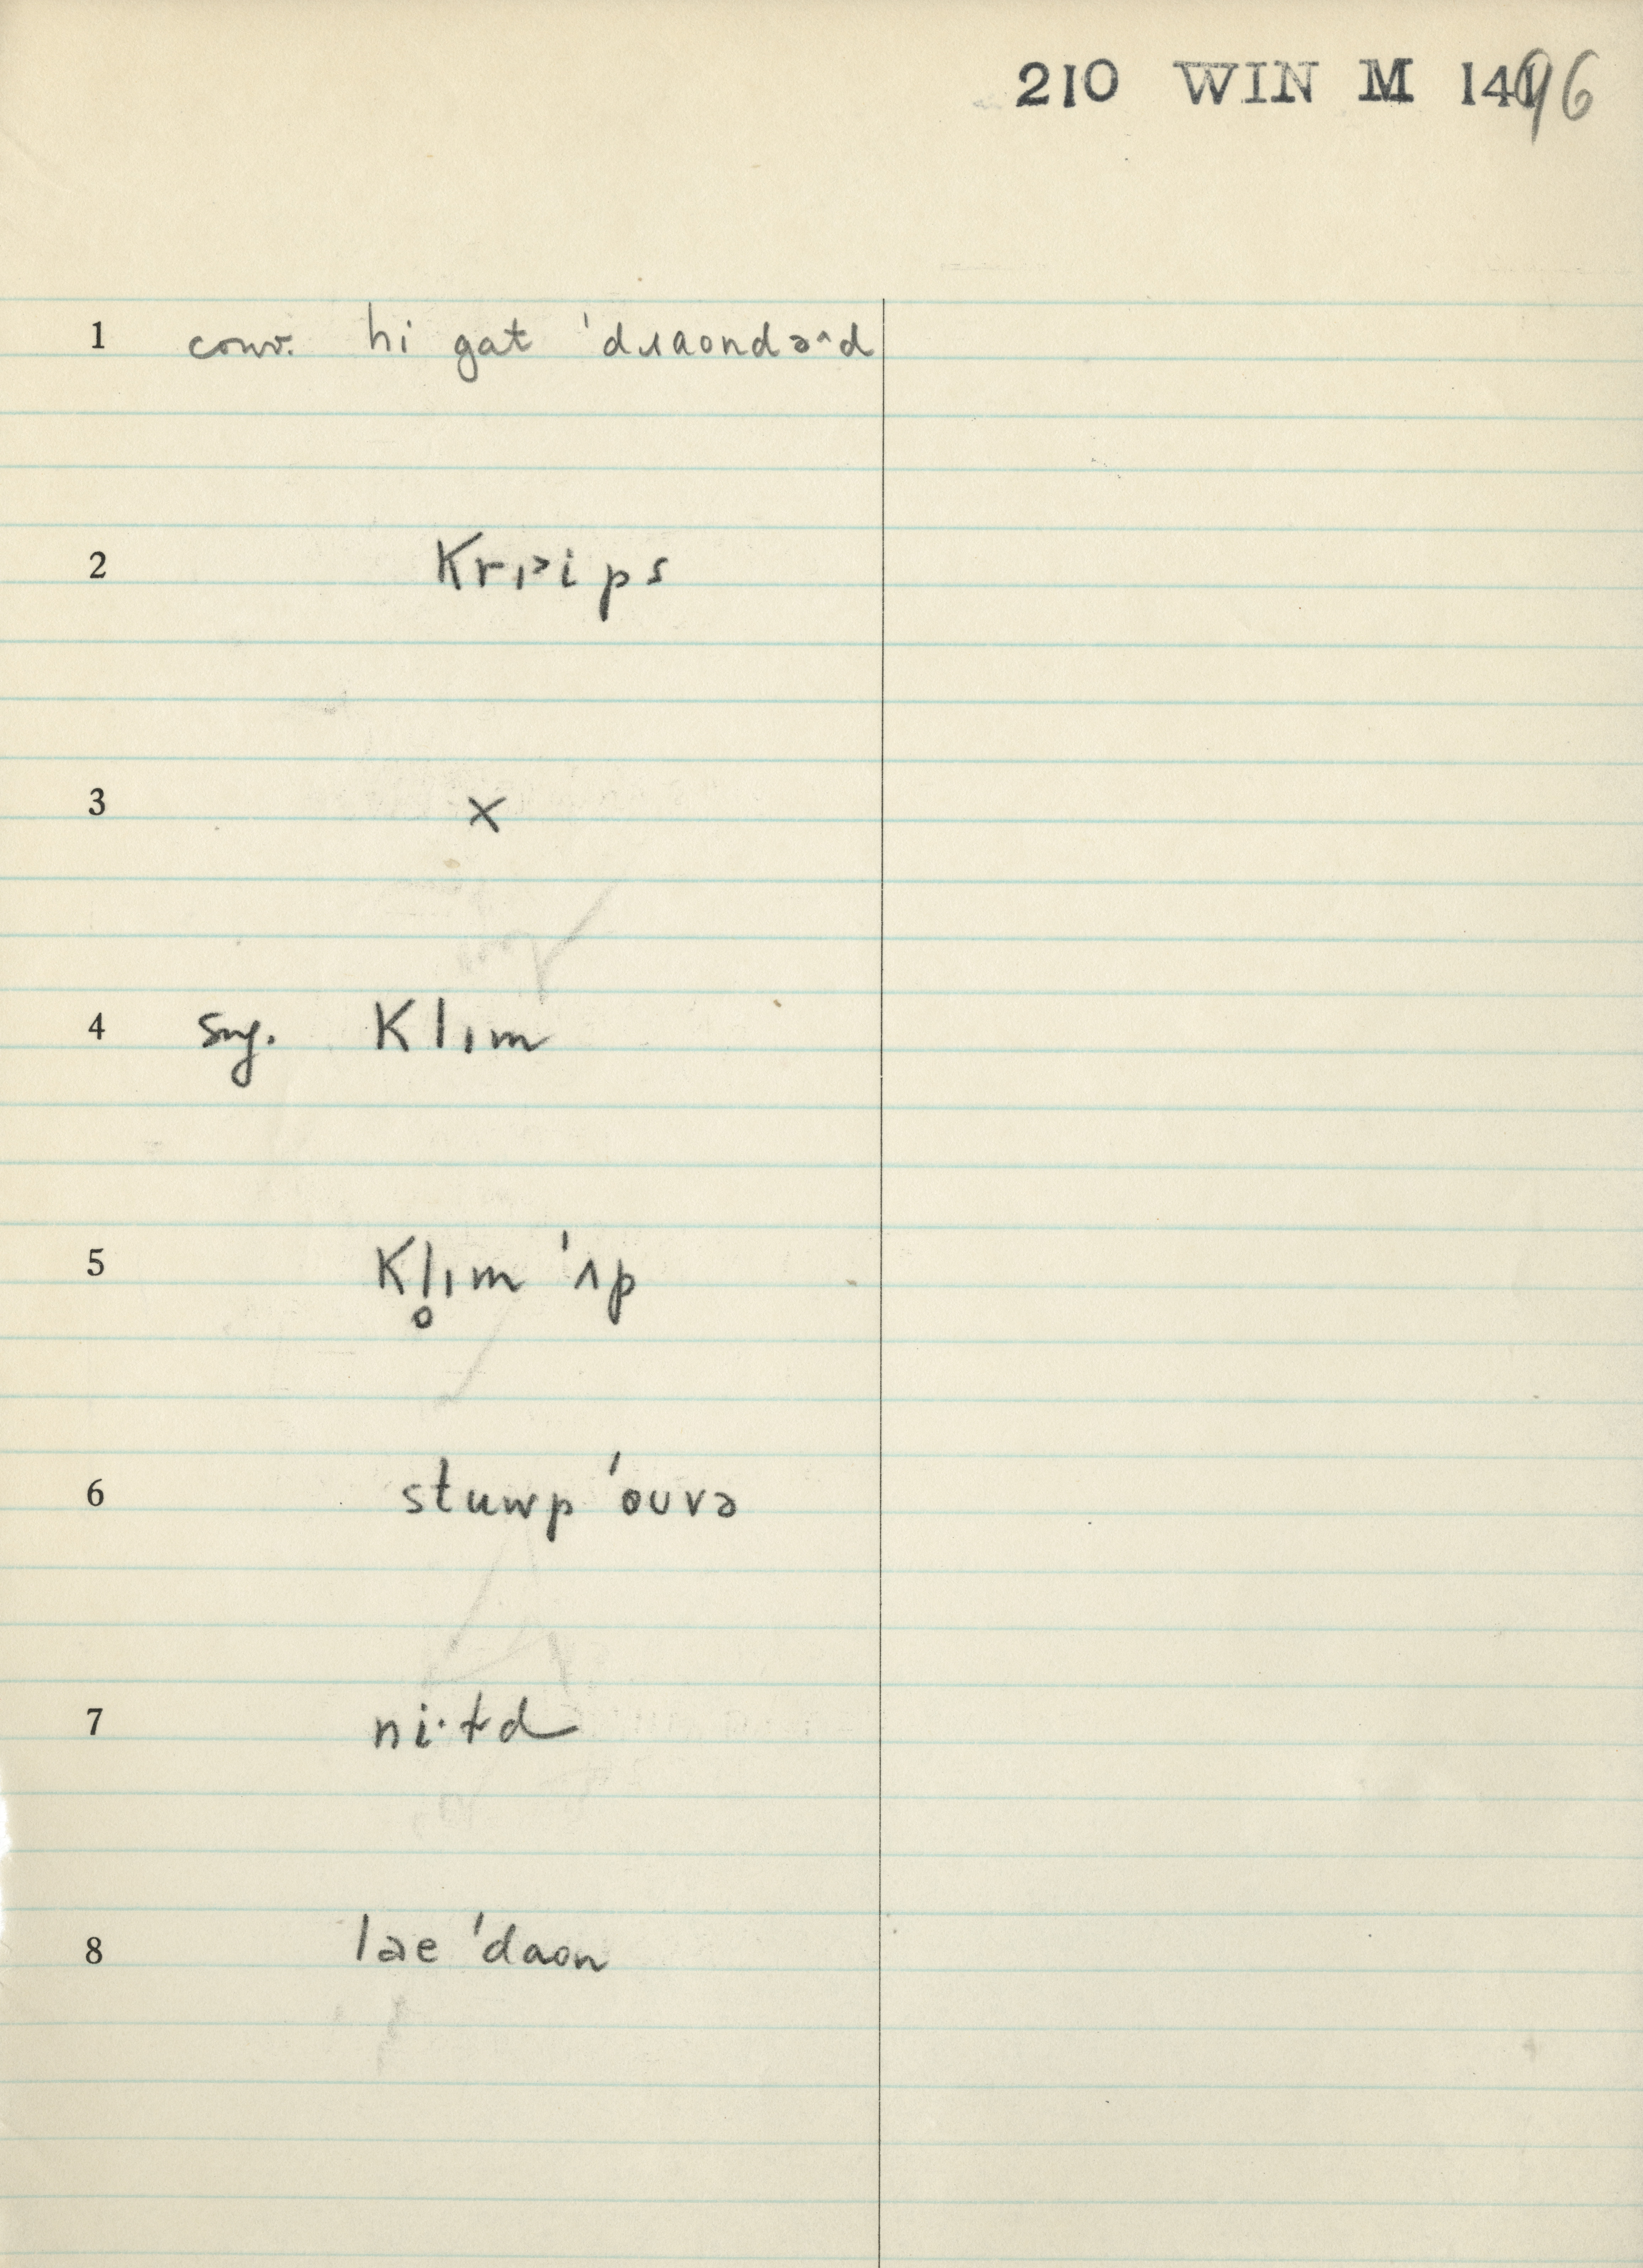 210 WIN M 1496
1 conv. hi gat ˈdɹaondəˆd
2 Krɪ˃ips
3 ×
4 sug. Klɪm
5 Kl̥ɪm ˈʌp
6 stuwp ˈouvə
7 ni·td
8 lae ˈdaon